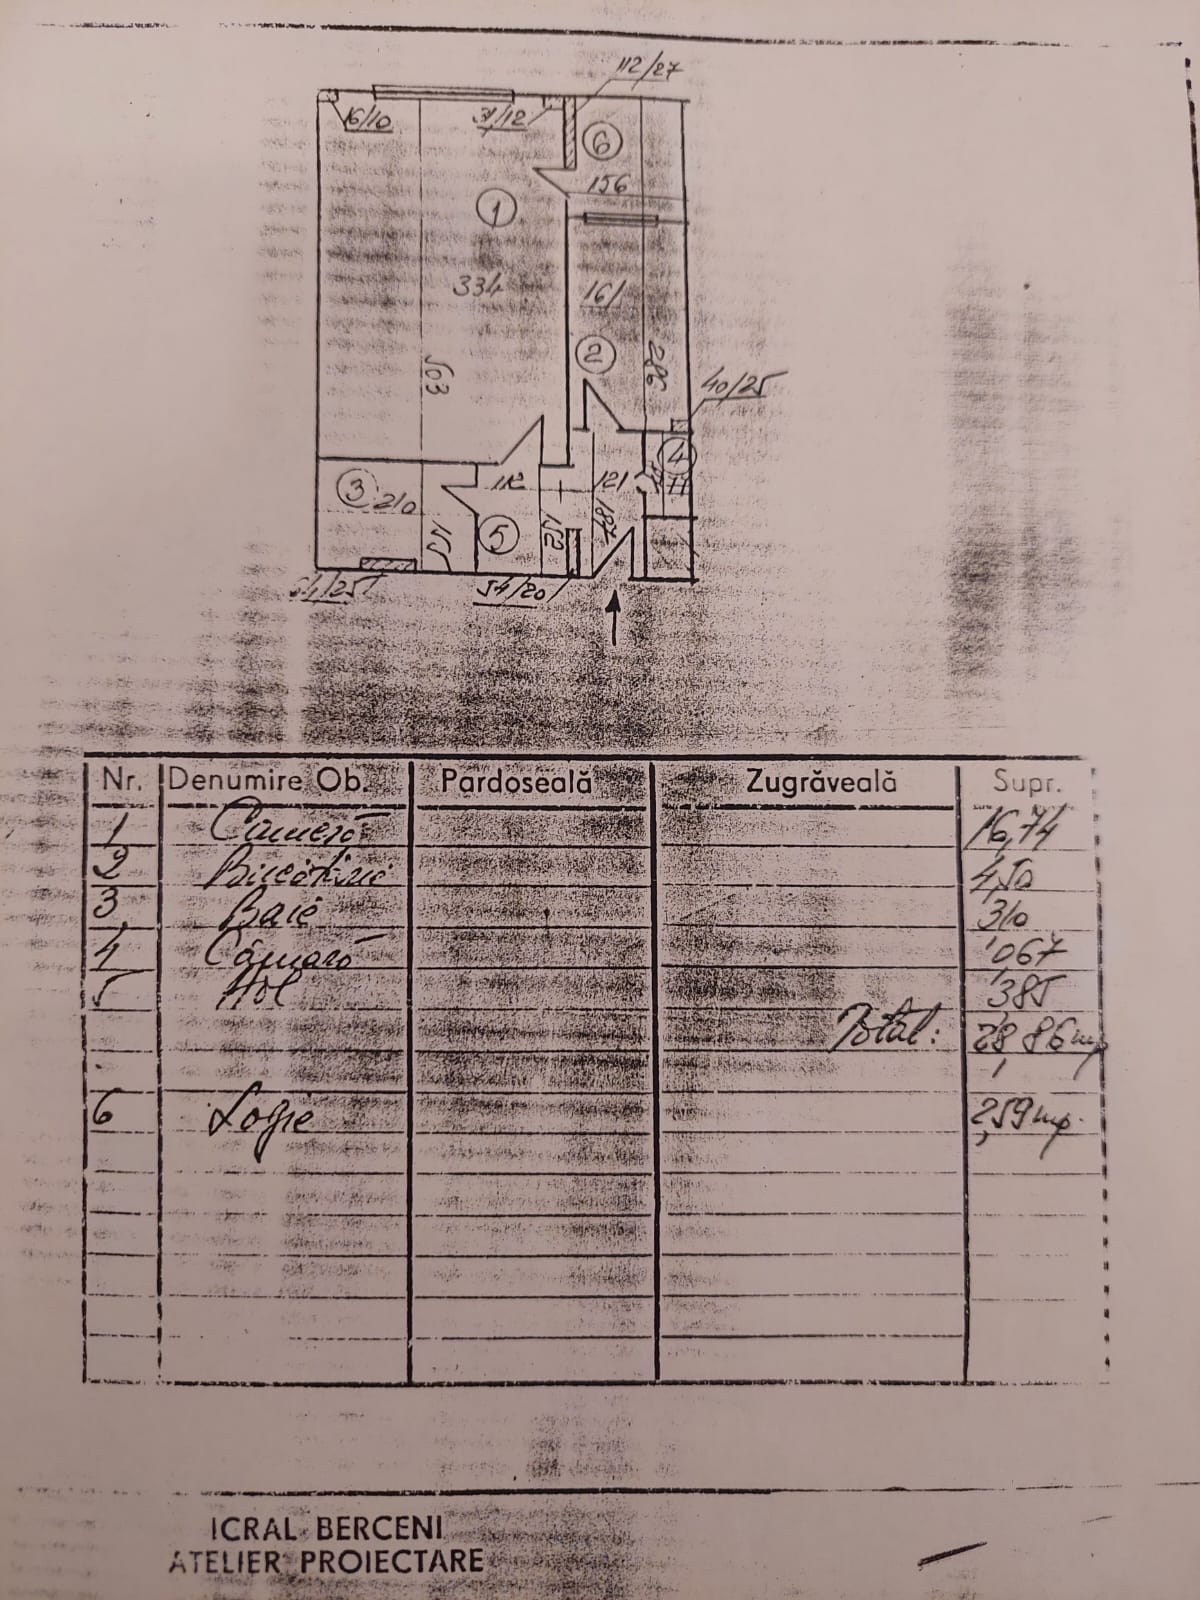 112/27
16/10
31/12
6
156
1
334
161
2
503
286
40/25
4
3
210
112
121
5
187
54/20
Nr. Denumire Ob. Pardoseală Zugrăveală Supr.
1 Cameră 16,74
2 Bucătărie 4,50
3 Baie 3,10
4 Cămară 0,67
5 Hol 3,85
Total: 28,86 mp
6 Logie 2,59 mp.
ICRAL BERCENI
ATELIER PROIECTARE